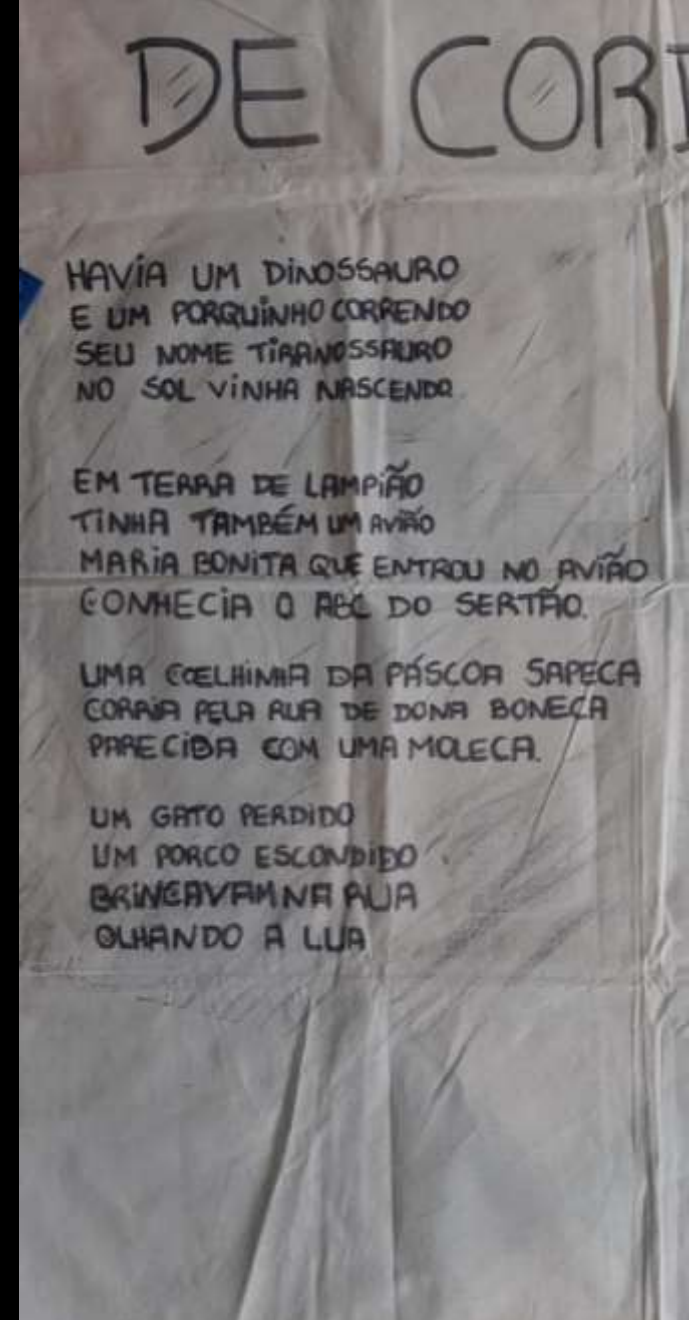 DE COR
HAVIA UM DINOSSAURO
E UM PORQUINHO CORRENDO
SEU NOME TIRANOSSAURO
NO SOL VINHA NASCENDO
EM TERRA DE LAMPIÃO
TINHA TAMBÉM UM AVIÃO
MARIA BONITA QUE ENTROU NO AVIÃO
CONHECIA O ABC DO SERTÃO.
UMA COELHINHA DA PÁSCOA SAPECA
CORRIA PELA RUA DE DONA BONECA
PARECIDA COM UMA MOLECA.
UM GATO PERDIDO
UM PORCO ESCONDIDO
BRINCAVAM NA RUA
OLHANDO A LUA